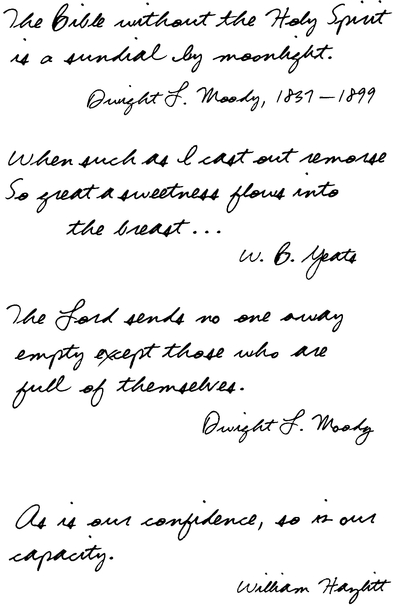 The Bible without the Holy Spirit
is a sundial by moonlight.
Dwight L. Moody, 1837–1899
When such as I cast out remorse
So great a sweetness flows into
the breast...
W. B. Yeats
The Lord sends no one away
empty except those who are
full of themselves.
Dwight L. Moody
As is our confidence, so is our
capacity.
William Hazlitt